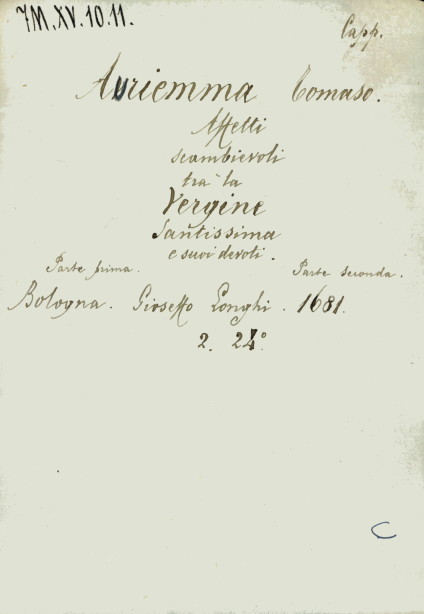 7M.XV.10.11.
Capp.
Auriemma Tomaso.
Affetti
scambievoli
tra la
Vergine
Santissima
e suoi devoti.
Parte prima. Parte seconda.
Bologna. Gioseffo Longhi. 1681.
2. 24°.
C